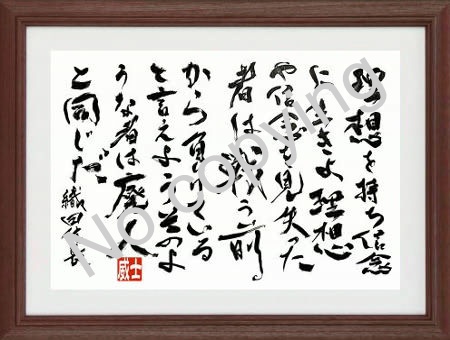 理想を持ち信念
に生きよ理想
や信念を見失った
者は戦う前
から負けている
と言えようそのよ
うな者は廃人
と同じだ
織田信長
威士
No copying